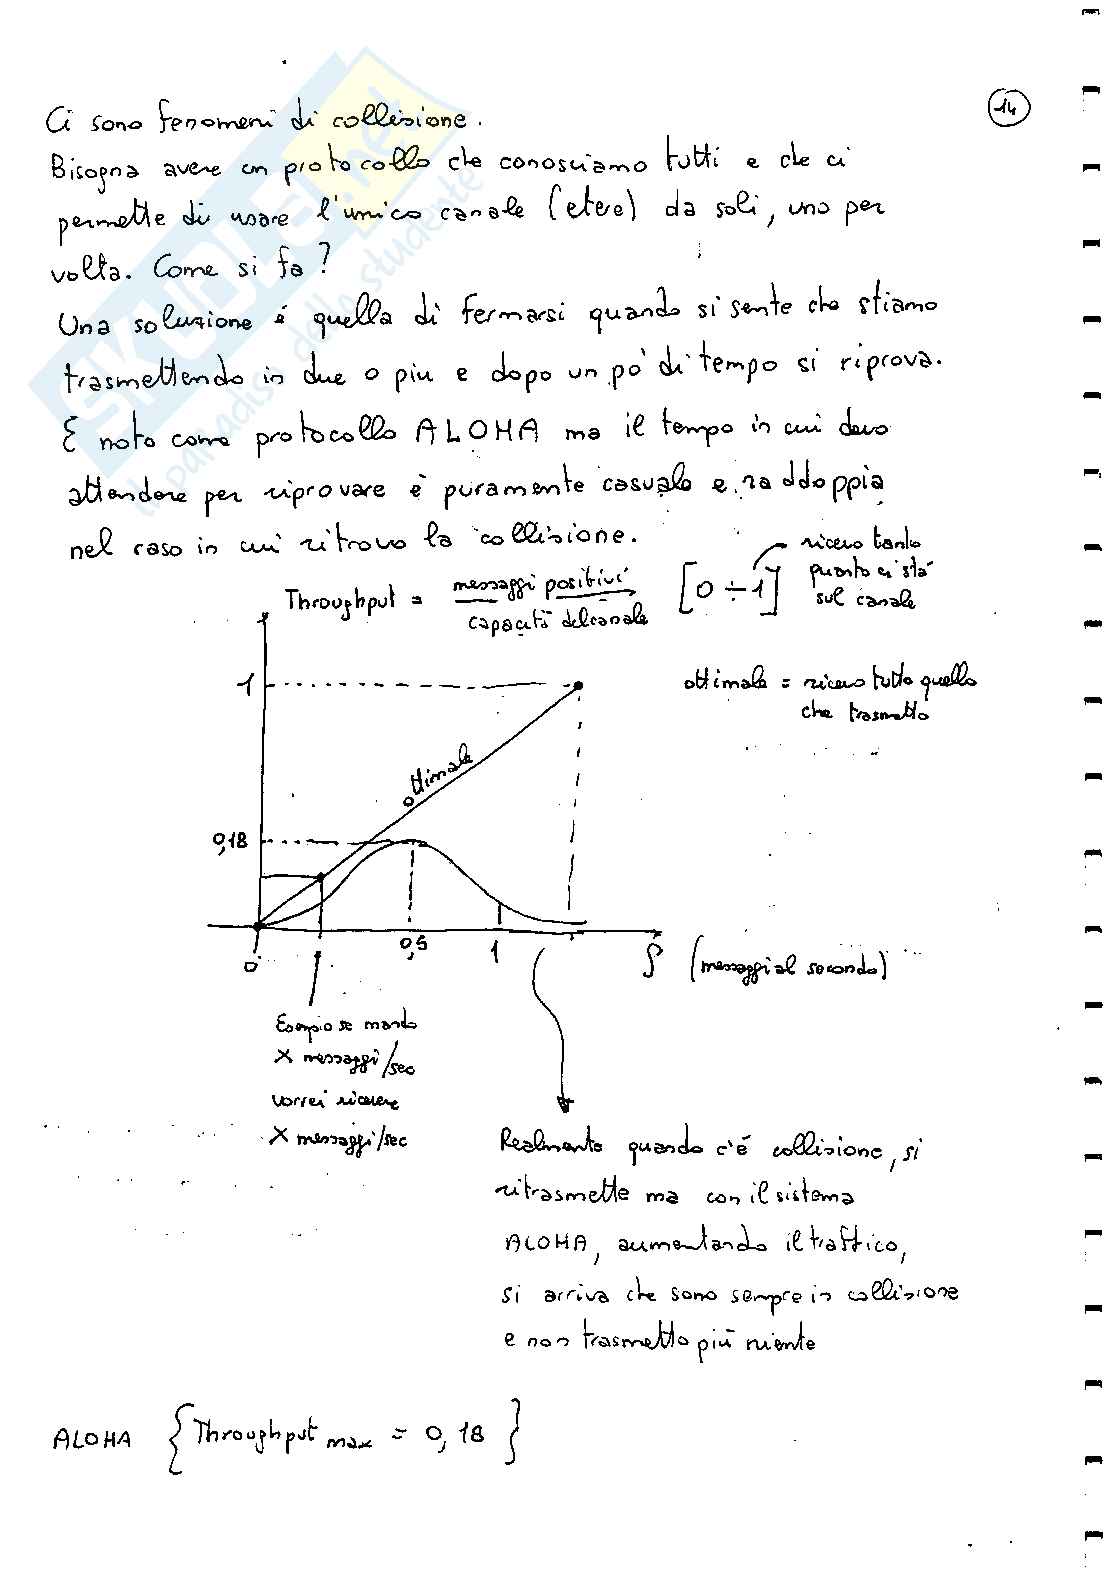 14
Ci sono fenomeni di collisione.
Bisogna avere un protocollo che conosciamo tutti e che ci
permette di usare l'unico canale (etere) da soli, uno per
volta. Come si fa?
Una soluzione è quella di fermarsi quando si sente che stiamo
trasmettendo in due o più e dopo un pò di tempo si riprova.
È noto come protocollo ALOHA ma il tempo in cui devo
attendere per riprovare è puramente casuale e raddoppia
nel caso in cui ritrovo la collisione.
Throughput = messaggi positivi / capacità del canale [0 ÷ 1]
ricevo tanto
quanto ci stà
sul canale
1
ottimale = ricevo tutto quello
che trasmetto
ottimale
0,18
0
0,5
1
ρ (messaggi al secondo)
Esempio se mando
X messaggi/sec
vorrei ricevere
X messaggi/sec
Realmente quando c'è collisione, si
ritrasmette ma con il sistema
ALOHA, aumentando il traffico,
si arriva che sono sempre in collisione
e non trasmetto più niente
ALOHA { Throughput max = 0,18 }
SKUOLA.net
il paradiso dello studente